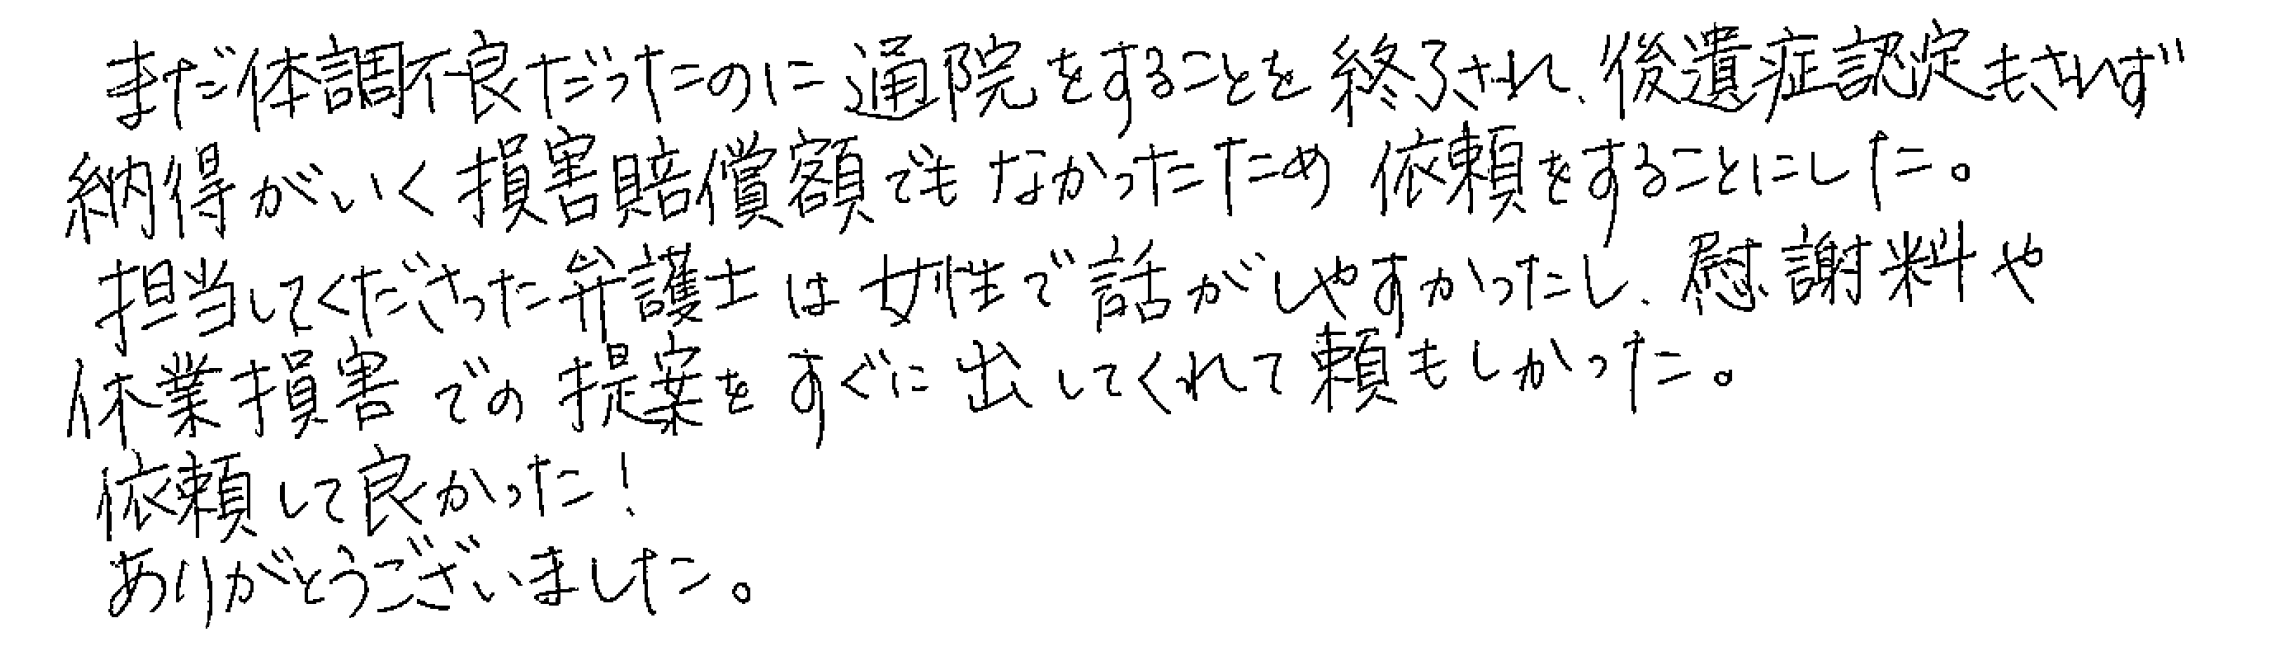 まだ体調不良だったのに通院をすることを終了され、後遺症認定もされず
納得がいく損害賠償額でもなかったため依頼をすることにした。
担当してくださった弁護士は女性で話がしやすかったし、慰謝料や
休業損害での提案をすぐに出してくれて頼もしかった。
依頼して良かった!
ありがとうございました。